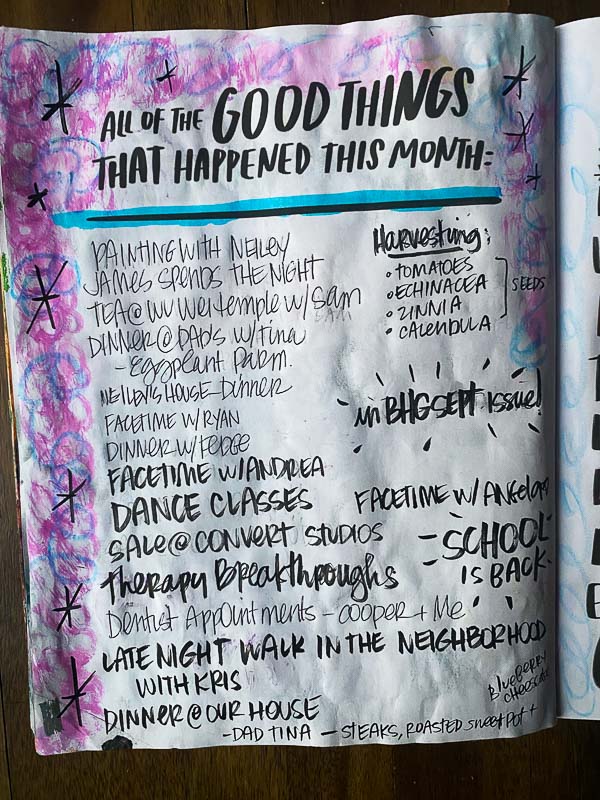 ALL OF THE GOOD THINGS
THAT HAPPENED THIS MONTH:
PAINTING WITH NEILEY
JAMES SPENDS THE NIGHT
TEA@ WV w/ Sam
DINNER @ DAD'S w/ Tina
- Eggplant Parm.
NEILEY'S HOUSE - Dinner
FACETIME W/ RYAN
DINNER W/
FACETIME W/ ANDREA
DANCE CLASSES
SALE @ CONVERT STUDIOS
Therapy Breakthroughs
Dentist Appointments - Cooper + Me
LATE NIGHT WALK IN THE NEIGHBORHOOD
WITH KRIS
DINNER @ OUR HOUSE
- DAD TINA - STEAKS, ROASTED sweet Pot +
BlueBerry
Harvesting:
• TOMATOES
• ECHINACEA
• ZINNIA
• CALENDULA
SEEDS
in BHG SEPT ISSUE!
FACETIME W/ Angela
- SCHOOL -
IS BACK -